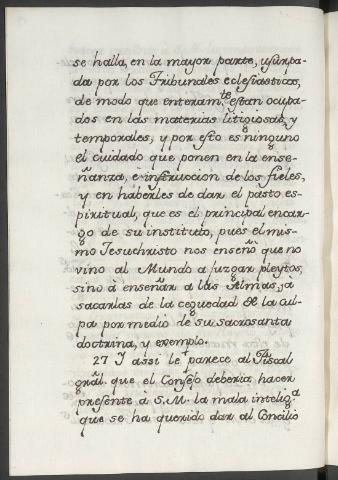 se halla, en la mayor parte, usurpa-
da por los Tribunales eclesiasticos,
de modo que enteram.te estan ocupa-
dos en las materias litigiosas, y
temporales, y por esto es ninguno
el cuidado que ponen en la ense-
ñanza, è instruccion de los fieles,
y en haberles de dar el pasto es-
piritual, que es el principal encar-
go de su instituto, pues el mis-
mo Jesuchristo nos enseñò que no
vino al Mundo à juzgar pleytos,
sino à enseñar à las Almas, à
sacarlas de la ceguedad de la cul-
pa por medio de su sacrosanta
doctrina, y exemplo.
27 Y assi le parece al Fiscal
gral. que el Consejo deberia hacer
presente à S.M. la mala intelig.a
que se ha querido dar al Concilio